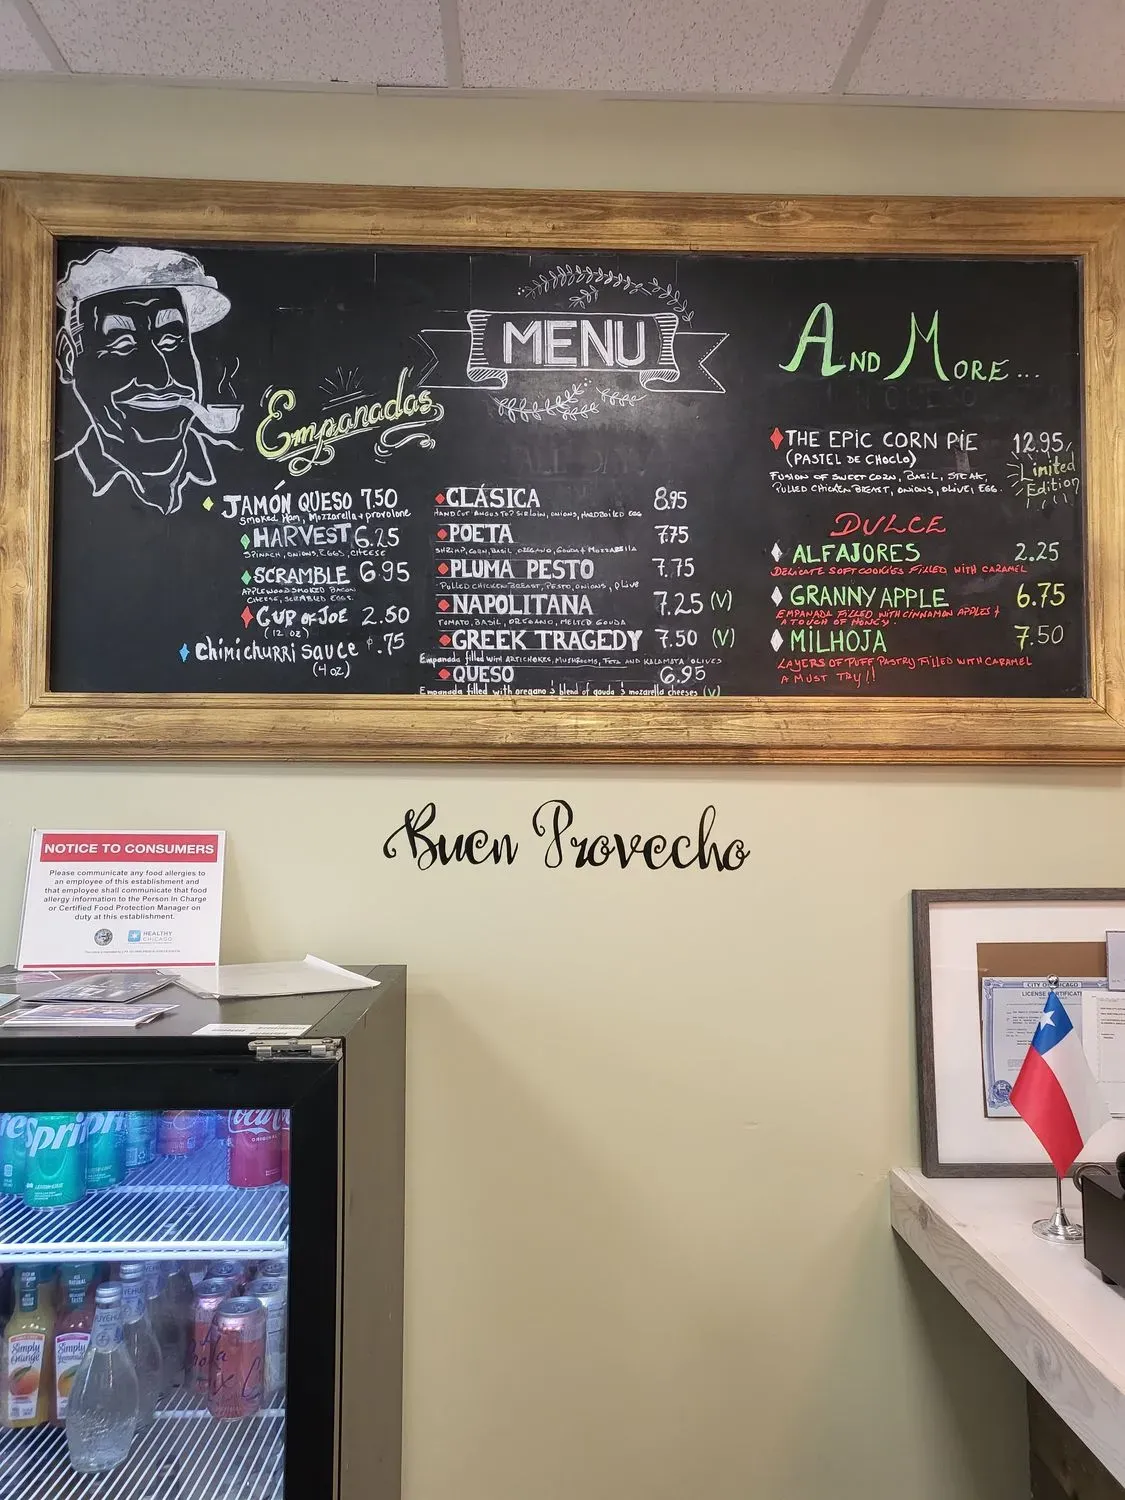 MENU
Empanadas
JAMÓN QUESO 7.50
Smoked Ham, Mozzarella + provolone
HARVEST 6.25
SPINACH, ONIONS, EGGS, CHEESE
SCRAMBLE 6.95
APPLEWOOD SMOKED BACON
CHEESE, SCRAMBLED EGGS.
CUP OF JOE 2.50
(12 oz)
Chimichurri Sauce .75
(4 oz)
CLÁSICA 8.95
HAND CUT ANGUS TOP SIRLOIN, ONIONS, HARDBOILED EGG
POETA 7.75
SHRIMP, CORN, BASIL, OREGANO, GOUDA & MOZZARELLA
PLUMA PESTO 7.75
PULLED CHICKEN BREAST, PESTO, ONIONS, OLIVE
NAPOLITANA 7.25 (V)
TOMATO, BASIL, OREGANO, MELTED GOUDA
GREEK TRAGEDY 7.50 (V)
Empanada filled with ARTICHOKES, MUSHROOMS, FETA AND KALAMATA OLIVES
QUESO 6.95
Empanada filled with oregano & blend of gouda & mozarella cheeses (V)
AND MORE...
THE EPIC CORN PIE 12.95
(PASTEL DE CHOCLO)
Limited
Edition
FUSION OF SWEET CORN, BASIL, STEAK,
PULLED CHICKEN BREAST, ONIONS, OLIVE, EGG.
DULCE
ALFAJORES 2.25
DELICATE SOFT COOKIES FILLED WITH CARAMEL
GRANNY APPLE 6.75
EMPANADA FILLED WITH CINNAMON APPLES &
A TOUCH OF HONEY.
MILHOJA 7.50
LAYERS OF PUFF PASTRY FILLED WITH CARAMEL
A MUST TRY!!
Buen Provecho
NOTICE TO CONSUMERS
Please communicate any food allergies to
an employee of this establishment and
that employee shall communicate that food
allergy information to the Person In Charge
or Certified Food Protection Manager on
duty at this establishment.
HEALTHY
CHICAGO
CITY OF CHICAGO
LICENSE CERTIFICATE
Sprite
Coca-Cola
ORIGINAL
Simply
Orange
Simply
Lemonade
La Croix